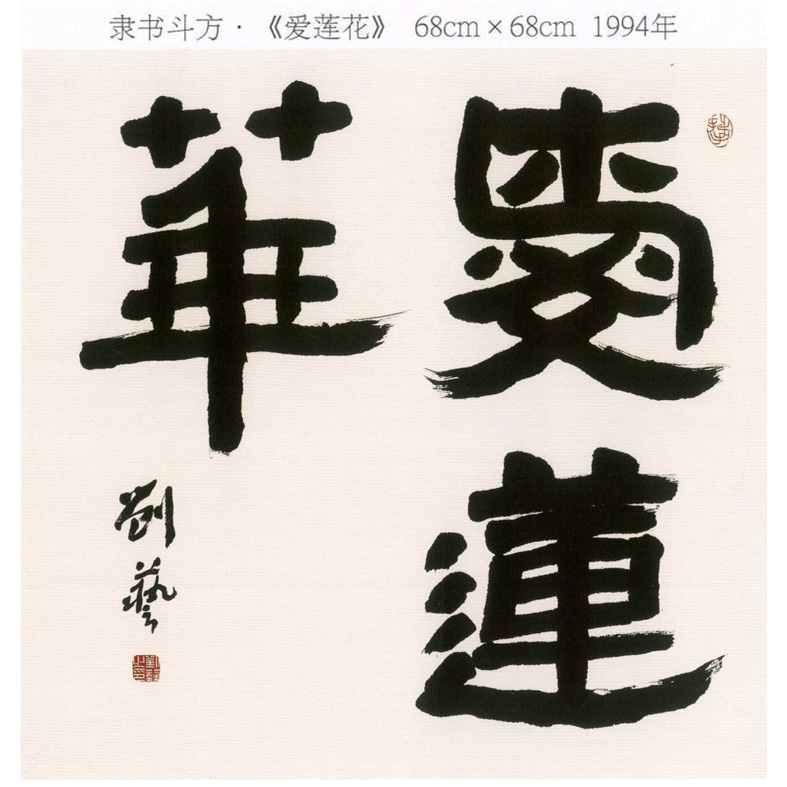 隶书斗方·《爱莲花》 68cm×68cm 1994年
愛蓮
華
劉藝